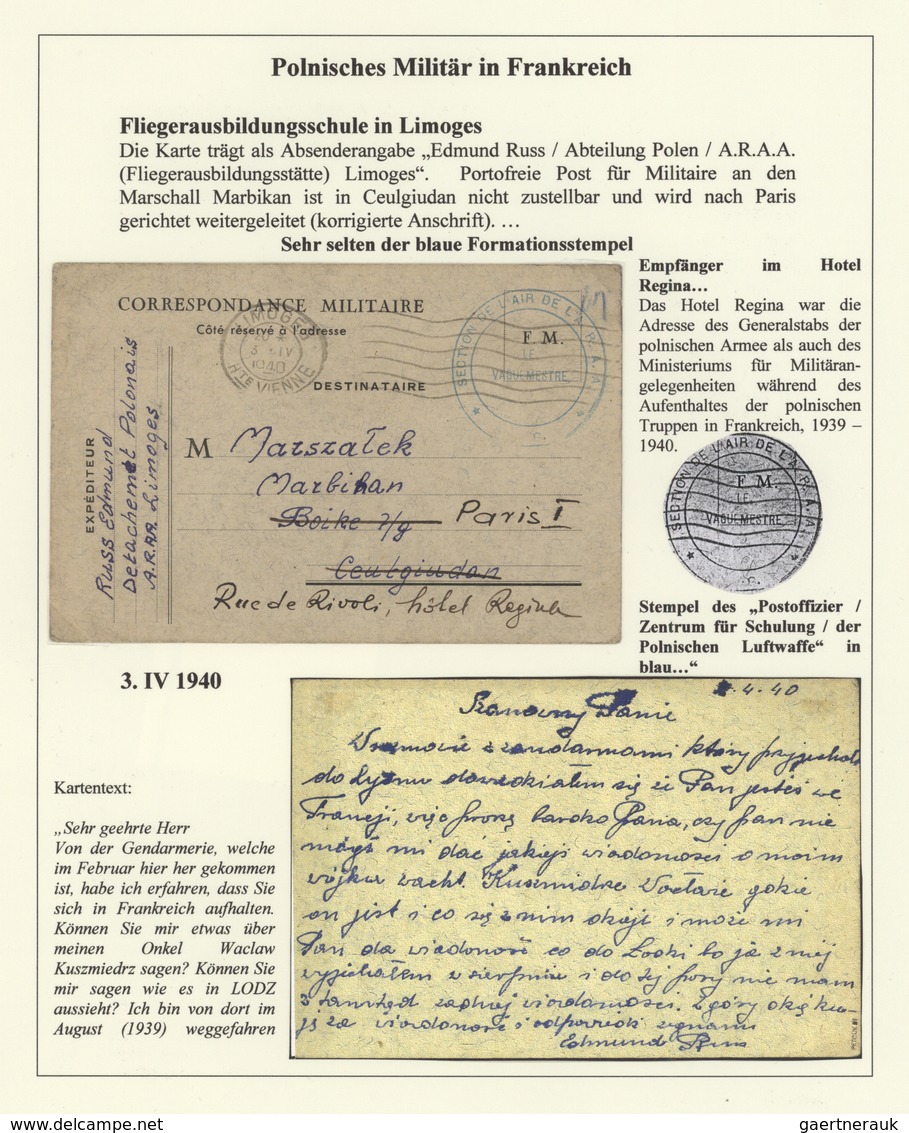 Polnisches Militär in Frankreich
Fliegerausbildungsschule in Limoges
Die Karte trägt als Absenderangabe „Edmund Russ / Abteilung Polen / A.R.A.A.
(Fliegerausbildungsstätte) Limoges“. Portofreie Post für Militaire an den
Marschall Marbikan ist in Ceulgiudan nicht zustellbar und wird nach Paris
gerichtet weitergeleitet (korrigierte Anschrift). …
Sehr selten der blaue Formationsstempel
CORRESPONDANCE MILITAIRE
Côté réservé à l'adresse
LIMOGES
3 IV
1940
HTE VIENNE
DESTINATAIRE
SECTION DE L'AIR DE LA R.A.A.
F. M.
LE
VAGUEMESTRE
EXPÉDITEUR
Russ Edmund
Detachemet Polonais
A.R.A.A. Limoges
M Marszałek
Marbikan
Boike 7/g Paris I
Ceulgiudan
Rue de Rivoli, hôtel Regina
Empfänger im Hotel
Regina…
Das Hotel Regina war die
Adresse des Generalstabs der
polnischen Armee als auch des
Ministeriums für Militäran-
gelegenheiten während des
Aufenthaltes der polnischen
Truppen in Frankreich, 1939 –
1940.
SECTION DE L'AIR DE LA R.A.A.
F. M.
LE
VAGUEMESTRE
Stempel des „Postoffizier /
Zentrum für Schulung / der
Polnischen Luftwaffe“ in
blau…“
3. IV 1940
Kartentext:
„Sehr geehrte Herr
Von der Gendarmerie, welche
im Februar hier her gekommen
ist, habe ich erfahren, dass Sie
sich in Frankreich aufhalten.
Können Sie mir etwas über
meinen Onkel Waclaw
Kuszmiedrz sagen? Können Sie
mir sagen wie es in LODZ
aussieht? Ich bin von dort im
August (1939) weggefahren
.4.40
Szanowny Panie
z żandarmami który przyjechali
do dowiedziałem się że Pan jesteś we
Francji, więc proszę bardzo Pana, czy pan nie
mógł mi dać jakiejś wiadomości o moim
wójku gdzie
on jest i co się z nim dzieje i może mi
Pan da wiadomość co do Łodzi bo ja z niej
wyjechałem w sierpniu i do tej pory nie mam
stamtąd żadnej wiadomości. Z góry dzięku-
ję za wiadomość i odpowiedź
Edmund Russ
gaertnerauk
delcampe.net
gaertnerauk